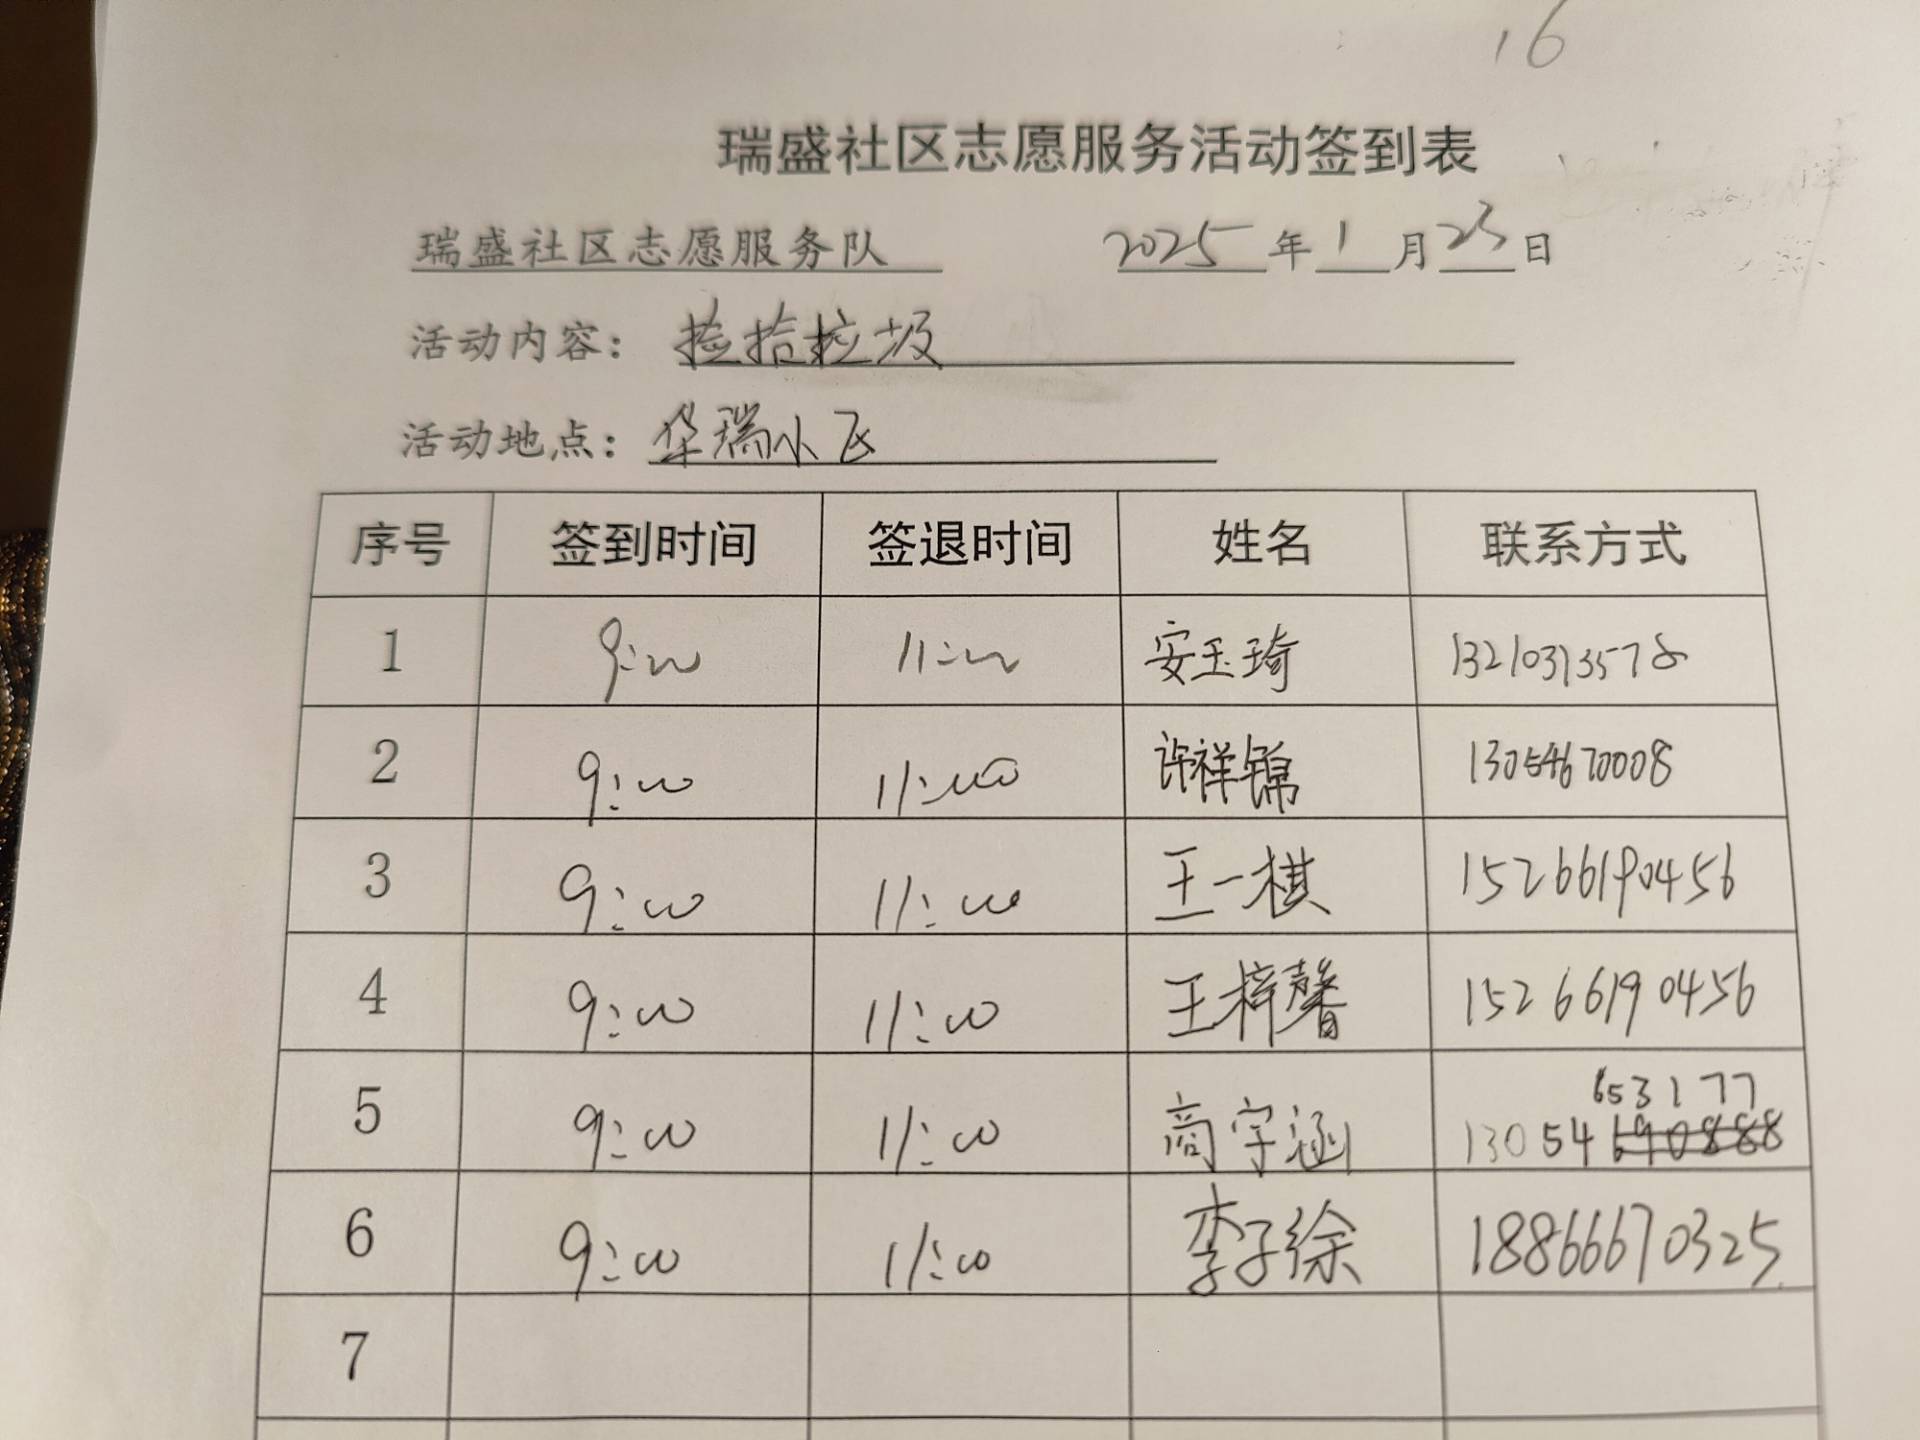 16
瑞盛社区志愿服务活动签到表
瑞盛社区志愿服务队 2025年1月23日
活动内容：捡拾垃圾
活动地点：华瑞小区
序号 签到时间 签退时间 姓名 联系方式
1 9:00 11:00 安玉琦 13210373578
2 9:00 11:00 许祥锦 13054670008
3 9:00 11:00 王一棋 15266190456
4 9:00 11:00 王梓馨 15266190456
653177
5 9:00 11:00 商宇涵 13054690888
6 9:00 11:00 李子徐 18866670325
7